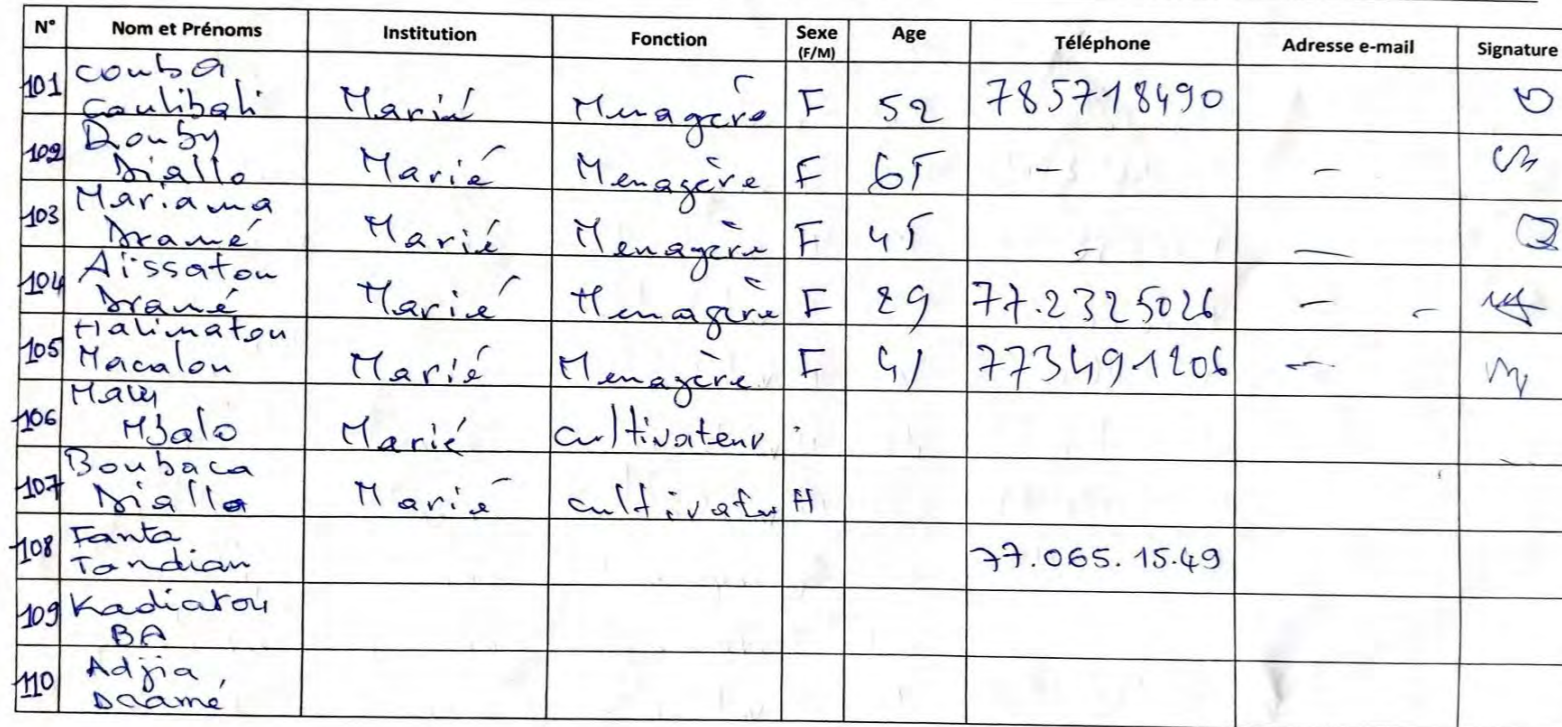 N° Nom et Prénoms Institution Fonction Sexe (F/M) Age Téléphone Adresse e-mail Signature
101 Couba Coulibali Marié Menagère F 52 785718490
102 Douby Diallo Marié Menagère F 65 - -
103 Mariama Dramé Marié Menagère F 45 - -
104 Aïssatou Dramé Marié Menagère F 29 77.2325026 - -
105 Halimatou Macalou Marié Menagère F 41 773491206 -
106 Mbalo Marié cultivateur
107 Boubaca Diallo Marié cultivateur H
108 Fanta Tandian 77.065.15.49
109 Kadiatou BA
110 Adjia Dramé